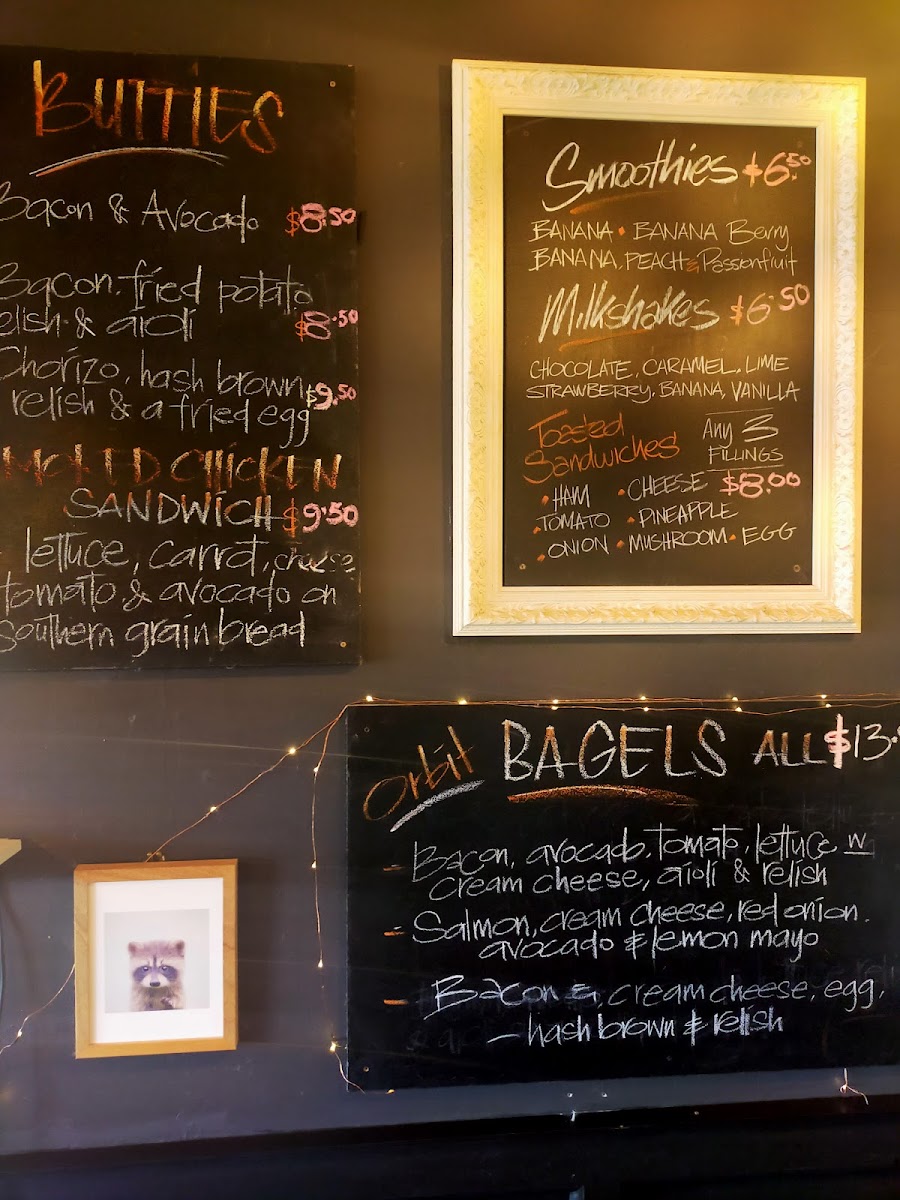 BUTTIES
Bacon & Avocado $8.50
Bacon, fried potato
elish & aioli $8.50
Chorizo, hash brown $9.50
relish & a fried egg
MOKED CHICKEN
SANDWICH $9.50
lettuce, carrot, cheese
tomato & avocado on
Southern grain bread
Smoothies $6.50
BANANA • BANANA Berry
BANANA, PEACH & Passionfruit
Milkshakes $6.50
CHOCOLATE, CARAMEL, LIME
STRAWBERRY, BANANA, VANILLA
Toasted Sandwiches
Any 3 FILLINGS
$8.00
• HAM • CHEESE
• TOMATO • PINEAPPLE
• ONION • MUSHROOM • EGG
Orbit BAGELS ALL $13.
- Bacon, avocado, tomato, lettuce w
cream cheese, aioli & relish
- Salmon, cream cheese, red onion,
avocado & lemon mayo
- Bacon, cream cheese, egg,
- hash brown & relish